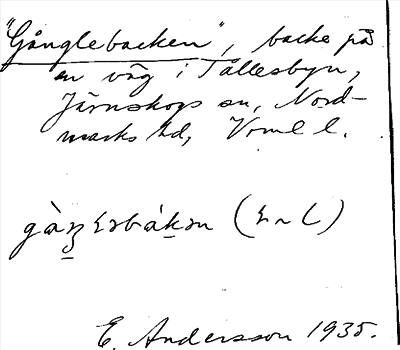 "Gånglebacken", backe på
en väg i Tållesbyn,
Järnskogs sn, Nord-
marks hd, Vrml l.
E. Andersson 1935.